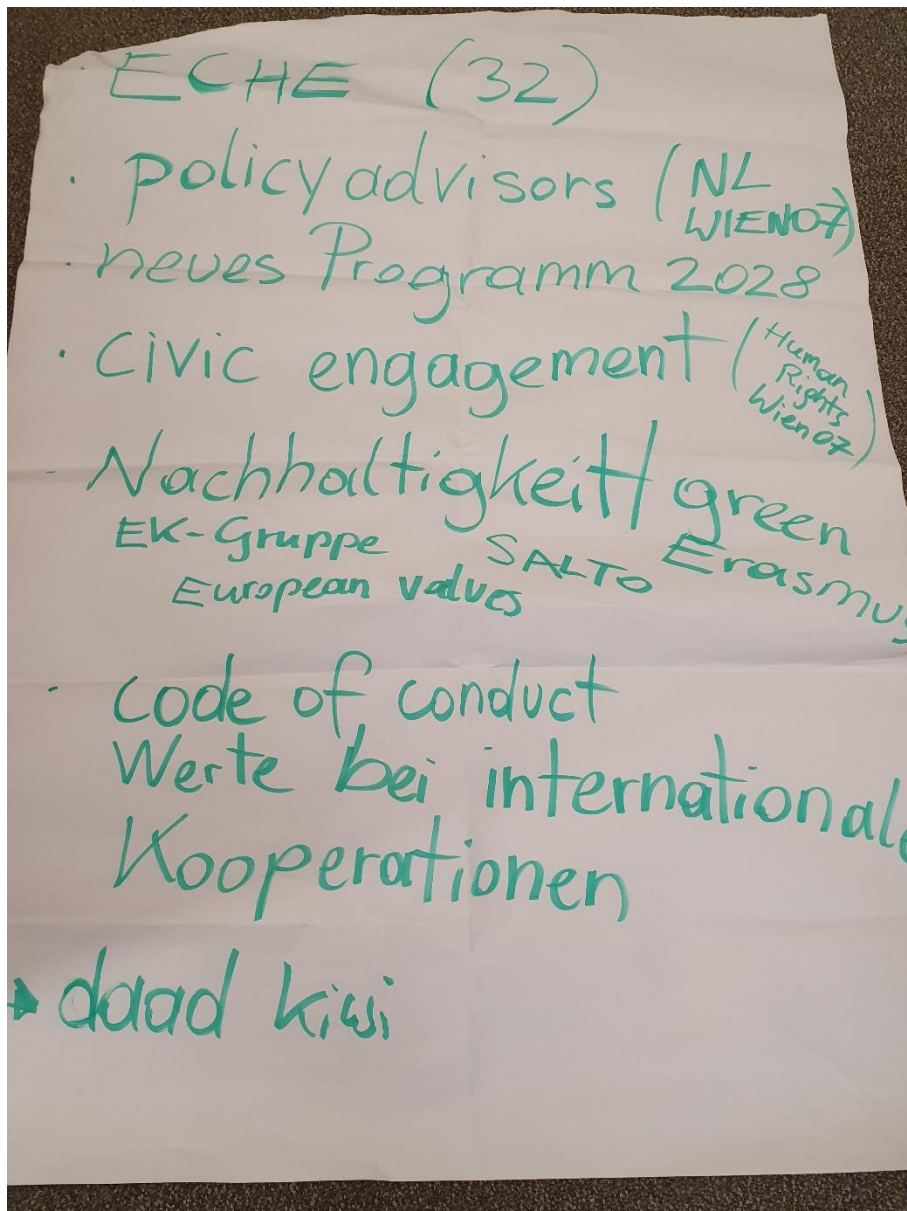 · ECHE (32)
· policy advisors (NL
WIEN07)
· neues Programm 2028
· civic engagement (Human
Rights
Wien07)
- Nachhaltigkeit/green
Erasmus
EK-Gruppe SALTO
European values
· code of conduct
Werte bei internationale
Kooperationen
→ daad kiwi